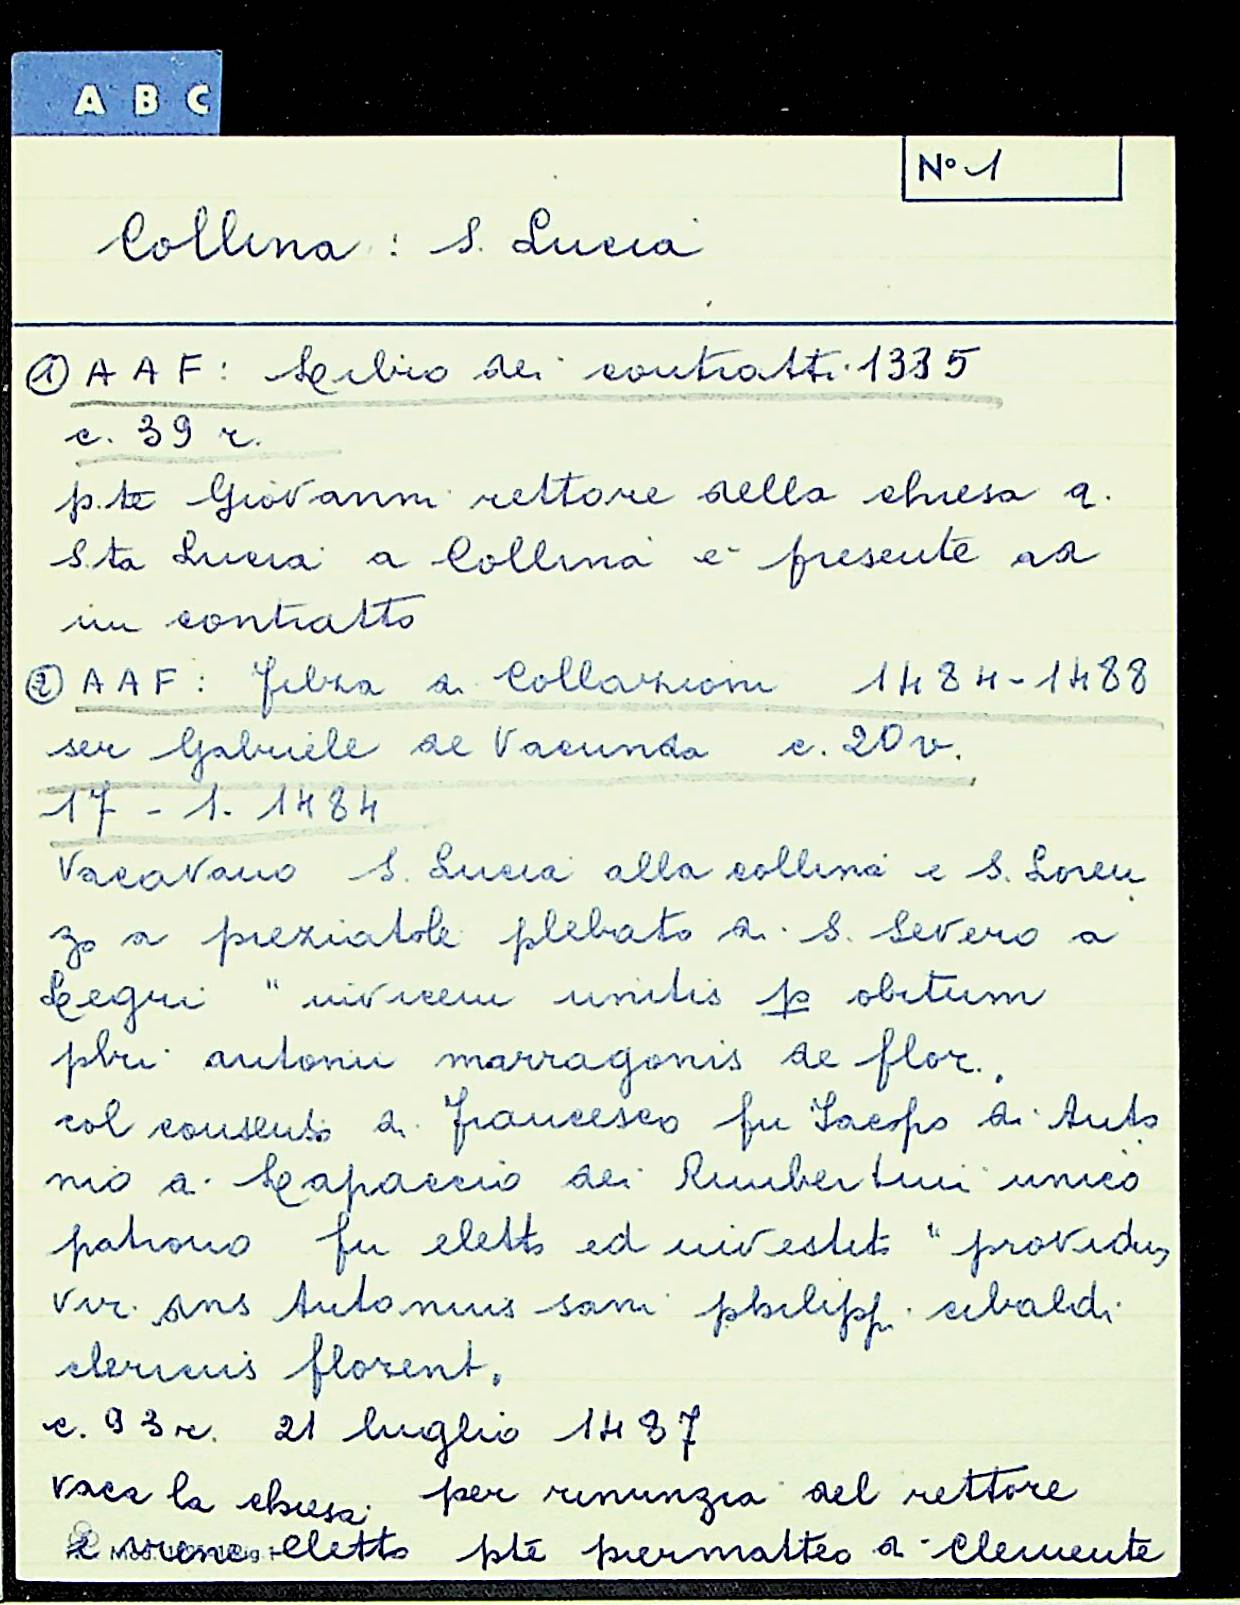 A B C
N° 1
Collina : S. Lucia
① A A F : Serbio dei contratti 1335
c. 39 r.
p.te Giovanni rettore della chiesa d.
S.ta Lucia a Collina è presente ad
un contratto
② A A F : Filza di Collazioni 1484-1488
ser Gabriele de Vacunda c. 20 v.
17 - 1. 1484
Vacavano S. Lucia alla collina e S. Loren
zo a preziatole plebato di S. Severo a
Legri " invicem unitis p obitum
pbri antonii marragonis de flor.,
col consenso di Francesco fu Iacopo di Anto
nio di Scapaccio dei Rimbertini unico
patrono fu eletto ed investito " providus
vir dns Antonius sani philipp. cibaldi
clericus florent.
c. 93 r. 21 luglio 1487
vaca la chiesa per rinunzia del rettore
e viene eletto pte piermatteo di Clemente